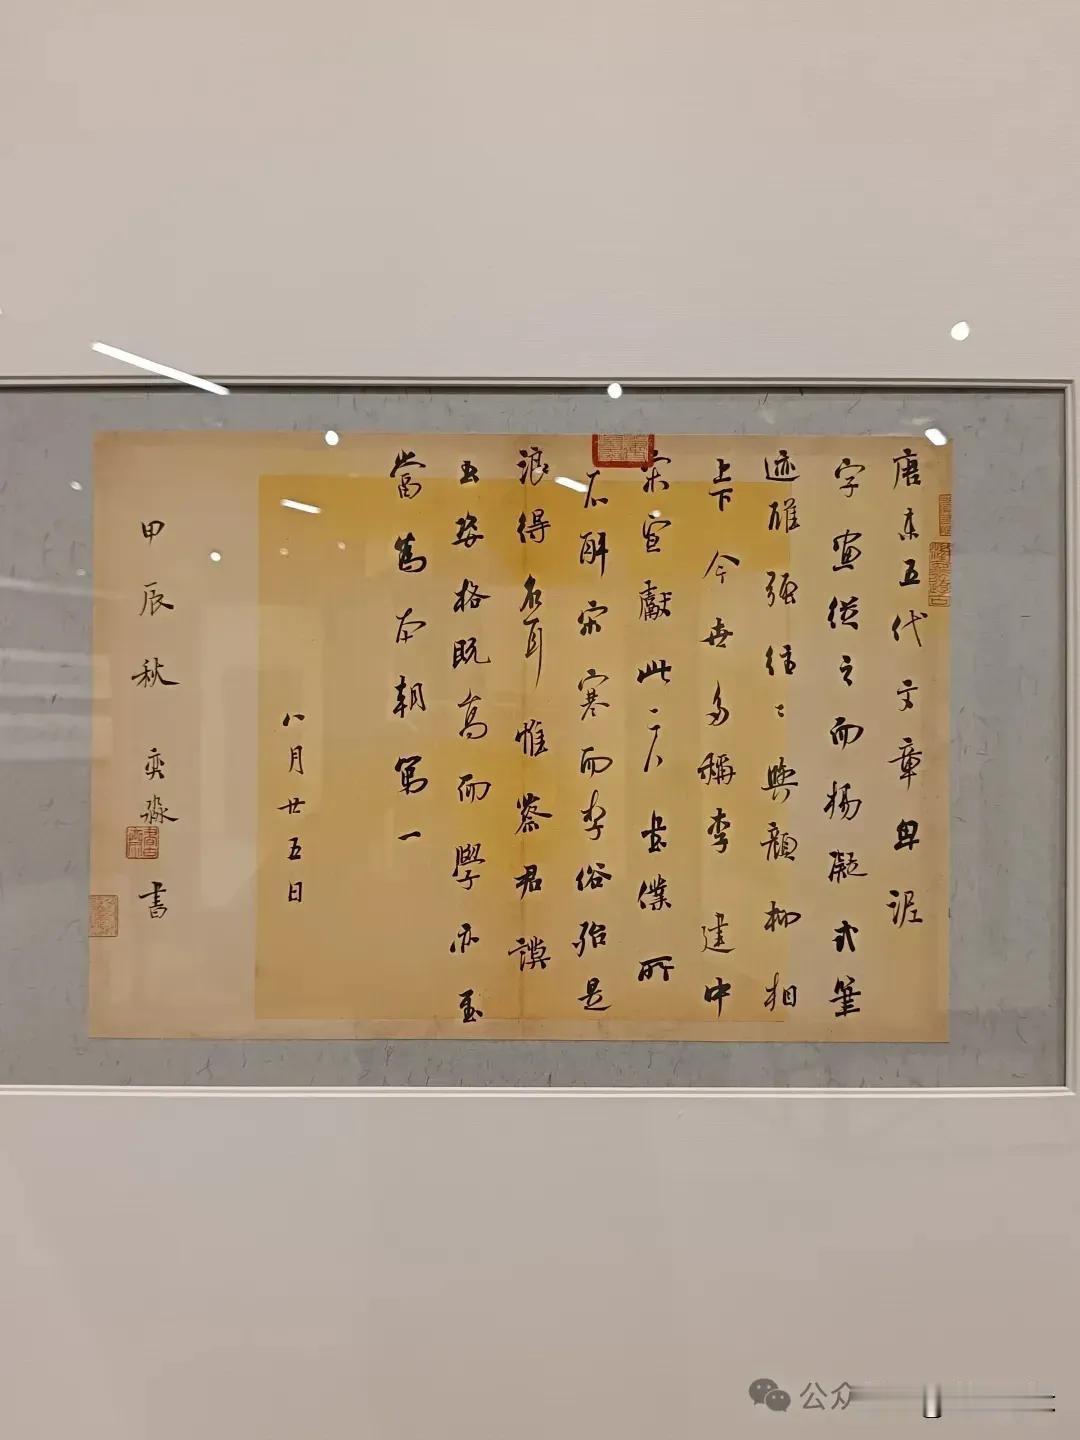 唐末五代文章卑泥
字畫從之而楊凝式筆
迹雄強往〻與顏柳相
上下今世多稱李建中
宋宣獻此二人書僕所
不解宋寒而李俗殆是
浪得名耳惟蔡君謨
書姿格既高而學亦至
當為本朝第一
八月廿五日
甲辰秋 奕淼書
公众